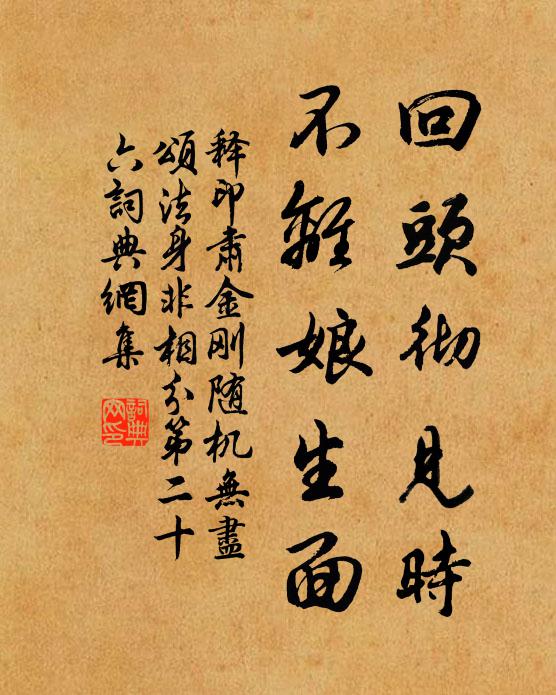 回頭彻見時
不離娘生面
释印肃金刚随机無盡
頌法身非相分第二十
六詞典網集
詞典
网印